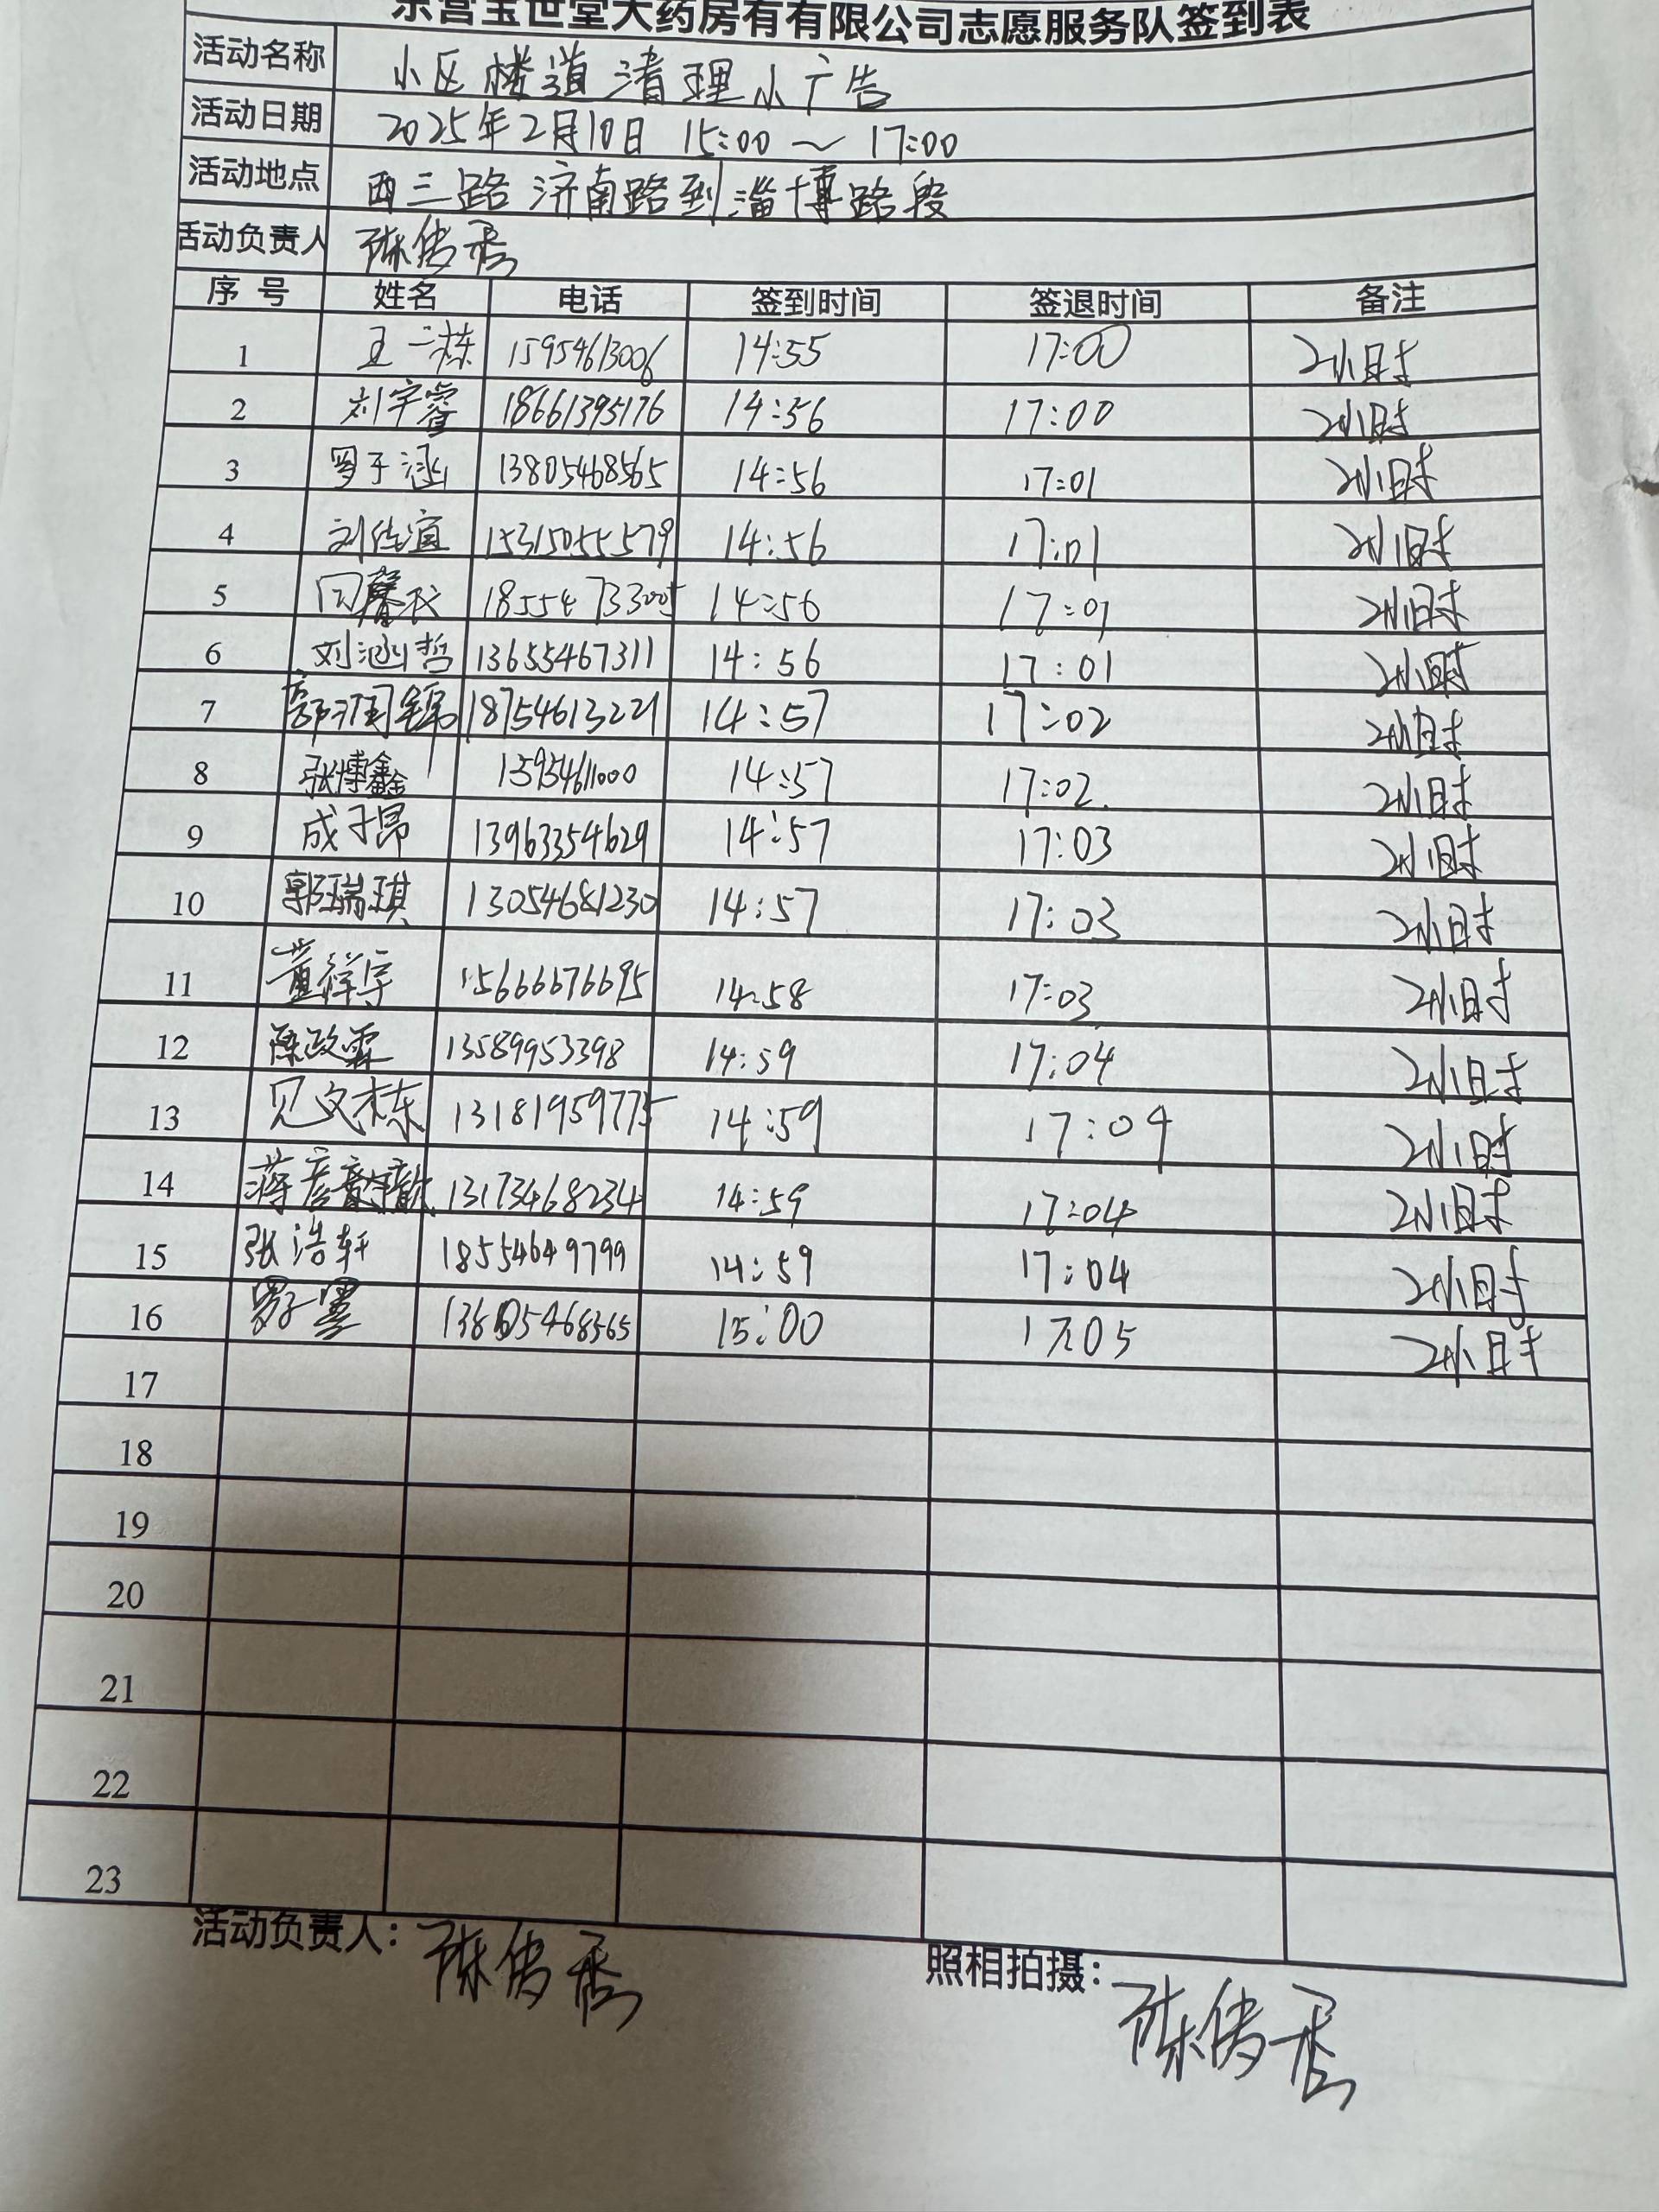 东营宝世堂大药房有有限公司志愿服务队签到表
活动名称 小区楼道清理小广告
活动日期 2025年2月10日 15:00～17:00
活动地点 西三路济南路到淄博路段
活动负责人 陈传
序号 姓名 电话 签到时间 签退时间 备注
1 王一栋 15954613006 14:55 17:00 2小时
2 刘宇睿 18661395176 14:56 17:00 2小时
3 罗子涵 13805468565 14:56 17:01 2小时
4 刘佳宜 15315055579 14:56 17:01 2小时
5 馨 18554733005 14:56 17:01 2小时
6 刘涵哲 13655467311 14:56 17:01 2小时
7 郭 18754613221 14:57 17:02 2小时
8 张博鑫 15954611000 14:57 17:02 2小时
9 成子昂 13963354629 14:57 17:03 2小时
10 郭瑞琪 13054681230 14:57 17:03 2小时
11 董祥宇 15666676695 14:58 17:03 2小时
12 陈政霖 13589953398 14:59 17:04 2小时
13 见文栋 13181959775 14:59 17:04 2小时
14 蒋彦歆 13173468234 14:59 17:04 2小时
15 张浩轩 18554649799 14:59 17:04 2小时
16 罗子墨 13805468565 15:00 17:05 2小时
17
18
19
20
21
22
23
活动负责人：陈传 照相拍摄：陈传